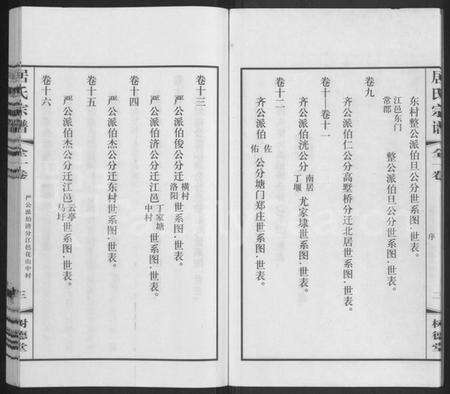 居氏宗谱
全一卷
序
树德堂
东村整公派伯旦公分世系图、世表。
江邑东门
常郡
整公派伯旦公分世系图、世表。
卷九
齐公派伯仁公分高墅桥分迁北居世系图、世表。
卷十—卷十一
齐公派伯洸公分
南居
丁堰
尤家埭世系图、世表。
卷十二
齐公派伯
佐
佑
公分塘门郑庄世系图、世表。
卷十三
严公派伯俊公分迁江邑
横村
洛阳
世系图、世表。
卷十四
严公派伯济公分迁江邑
丁家塘
中村
世系图、世表。
卷十五
严公派伯杰公分迁东村世系图、世表。
卷十六
严公派伯杰公分迁江邑
云亭
马圩
世系图、世表。
居氏宗谱
全一卷
严公派伯济分江邑花山中村
三
树德堂